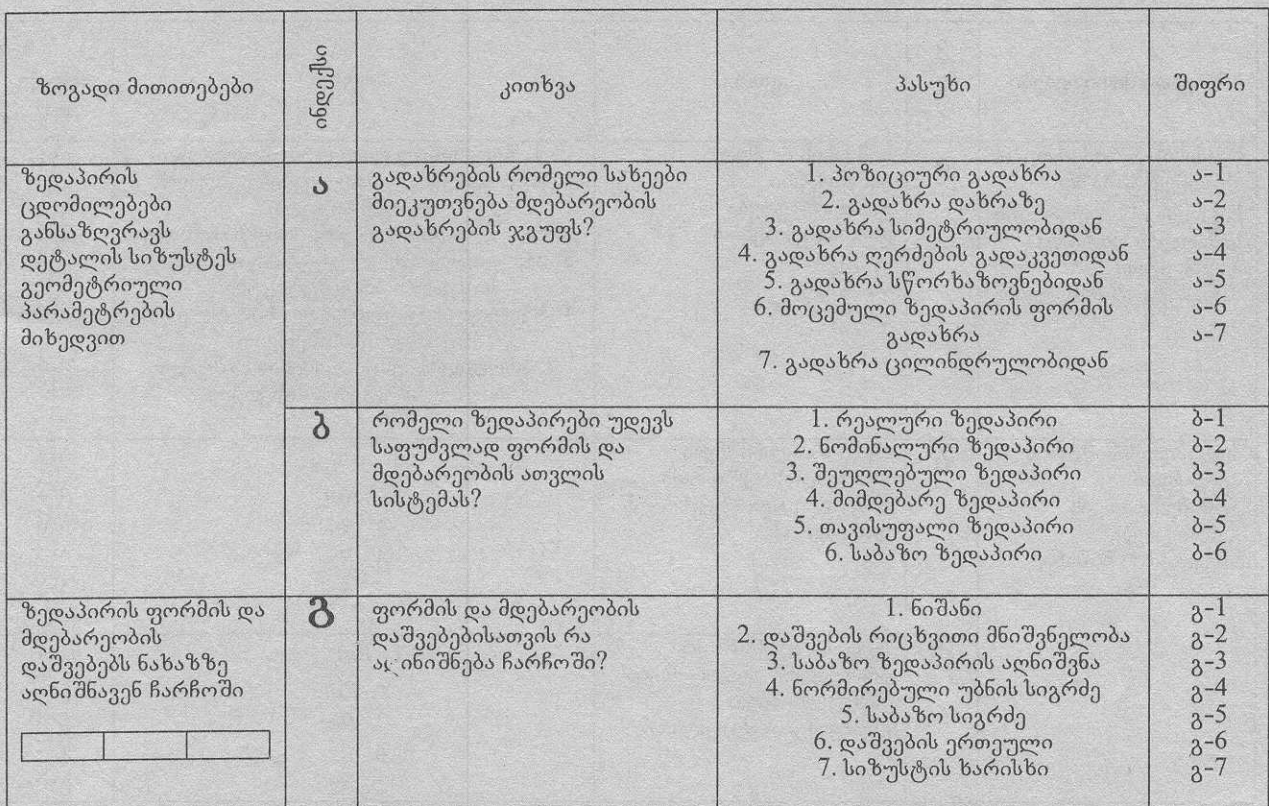 ზოგადი მითითებები
ინდექსი
კითხვა
პასუხი
შიფრი
ზედაპირის
ცდომილებები
განსაზღვრავს
დეტალის სიზუსტეს
გეომეტრიული
პარამეტრების
მიხედვით
ა
გადახრების რომელი სახეები
მიეკუთვნება მდებარეობის
გადახრების ჯგუფს?
1. პოზიციური გადახრა
2. გადახრა დახრაზე
3. გადახრა სიმეტრიულობიდან
4. გადახრა ღერძების გადაკვეთიდან
5. გადახრა სწორხაზოვნებიდან
6. მოცემული ზედაპირის ფორმის
გადახრა
7. გადახრა ცილინდრულობიდან
ა-1
ა-2
ა-3
ა-4
ა-5
ა-6
ა-7
ბ
რომელი ზედაპირები უდევს
საფუძვლად ფორმის და
მდებარეობის ათვლის
სისტემას?
1. რეალური ზედაპირი
2. ნომინალური ზედაპირი
3. შეუღლებული ზედაპირი
4. მიმდებარე ზედაპირი
5. თავისუფალი ზედაპირი
6. საბაზო ზედაპირი
ბ-1
ბ-2
ბ-3
ბ-4
ბ-5
ბ-6
ზედაპირის ფორმის და
მდებარეობის
დაშვებებს ნახაზზე
აღნიშნავენ ჩარჩოში
გ
ფორმის და მდებარეობის
დაშვებებისათვის რა
აღინიშნება ჩარჩოში?
1. ნიშანი
2. დაშვების რიცხვითი მნიშვნელობა
3. საბაზო ზედაპირის აღნიშვნა
4. ნორმირებული უბნის სიგრძე
5. საბაზო სიგრძე
6. დაშვების ერთეული
7. სიზუსტის ხარისხი
გ-1
გ-2
გ-3
გ-4
გ-5
გ-6
გ-7